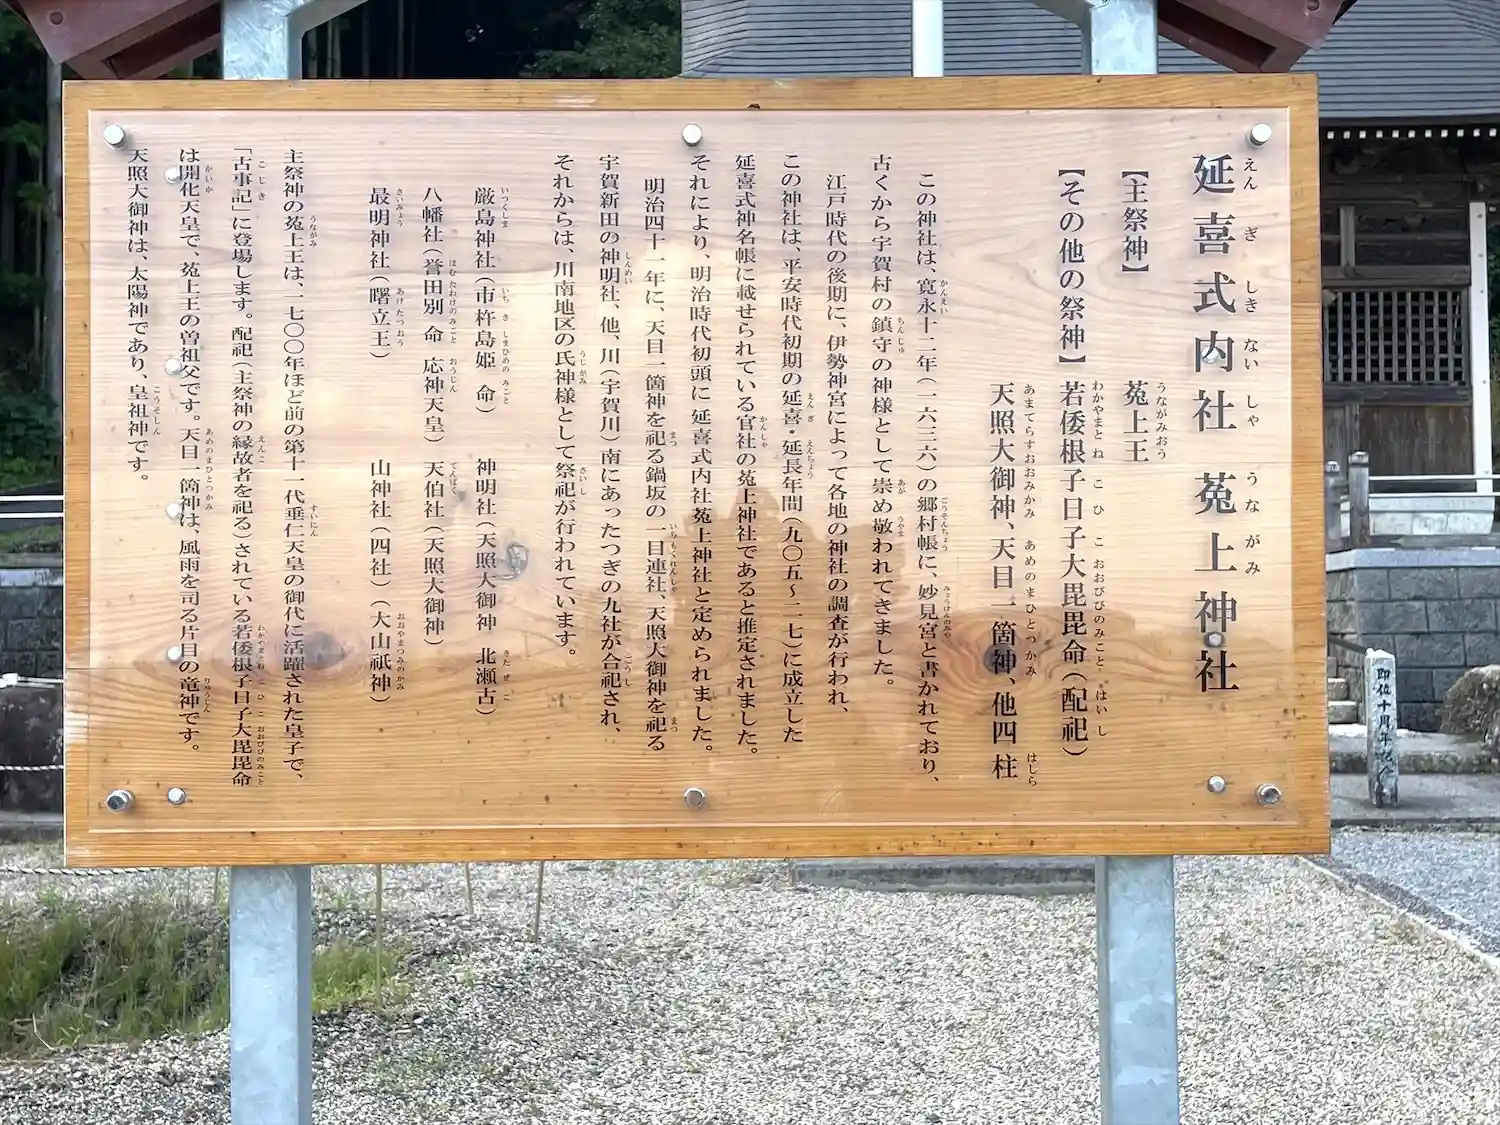 延喜式内社 菟上神社
【主祭神】 菟上王
【その他の祭神】 若倭根子日子大毘毘命（配祀）
天照大御神、天目一箇神、他四柱
この神社は、寛永十二年（一六三六）の郷村帳に、妙見宮と書かれており、
古くから宇賀村の鎮守の神様として崇め敬われてきました。
江戸時代の後期に、伊勢神宮によって各地の神社の調査が行われ、
この神社は、平安時代初期の延喜・延長年間（九〇五～二七）に成立した
延喜式神名帳に載せられている官社の菟上神社であると推定されました。
それにより、明治時代初頭に 延喜式内社菟上神社と定められました。
明治四十一年に、天目一箇神を祀る鍋坂の一目連社、天照大御神を祀る
宇賀新田の神明社、他、川（宇賀川）南にあったつぎの九社が合祀され、
それからは、川南地区の氏神様として祭祀が行われています。
厳島神社（市杵島姫 命） 神明社（天照大御神 北瀬古）
八幡社（誉田別 命 応神天皇） 天伯社（天照大御神）
最明神社（曙立王） 山神社（四社）（大山祇神）
主祭神の菟上王は、一七〇〇年ほど前の第十一代垂仁天皇の御代に活躍された皇子で、
「古事記」に登場します。配祀（主祭神の縁故者を祀る）されている若倭根子日子大毘毘命
は開化天皇で、菟上王の曽祖父です。天目一箇神は、風雨を司る片目の竜神です。
天照大御神は、太陽神であり、皇祖神です。